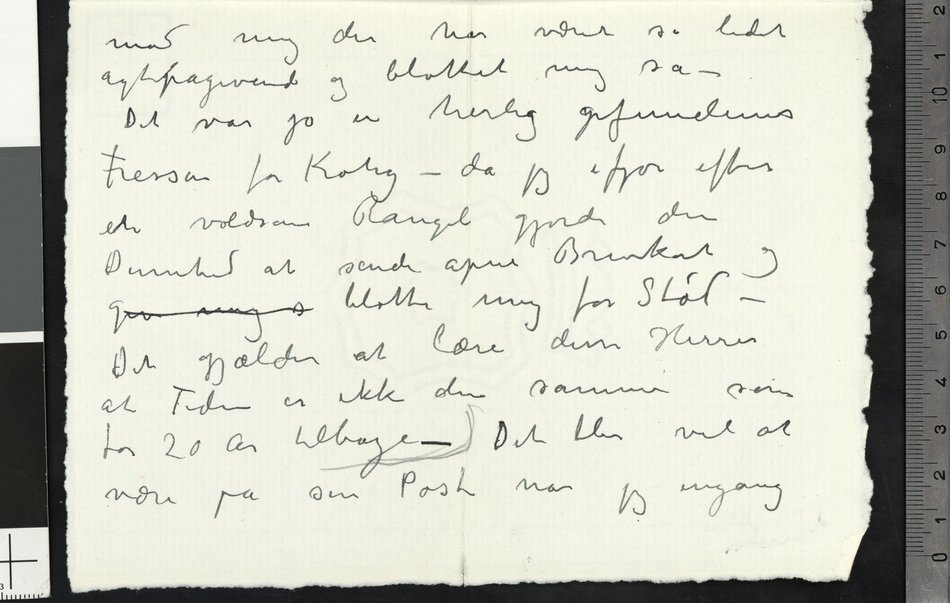 mod mig der har været så lidet
agtpågivende og blottet mig så —
Det var jo en herlig gefundenes
Fressen for Krohg — da jeg ifjor efter
et voldsomt Rangel gjorde den
Dumhed at sende åpne Brevkort og
gi mig s blotte mig for Stød —
Det gjælder at lære disse Herrer
at Tiden er ikke den samme som
for 20 År tilbage — Det blir vel at
være på sin Post når jeg engang